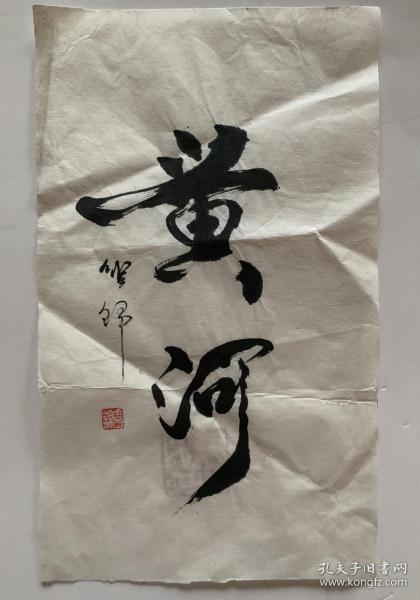 黄河
孔夫子旧书网
www.kongfz.com